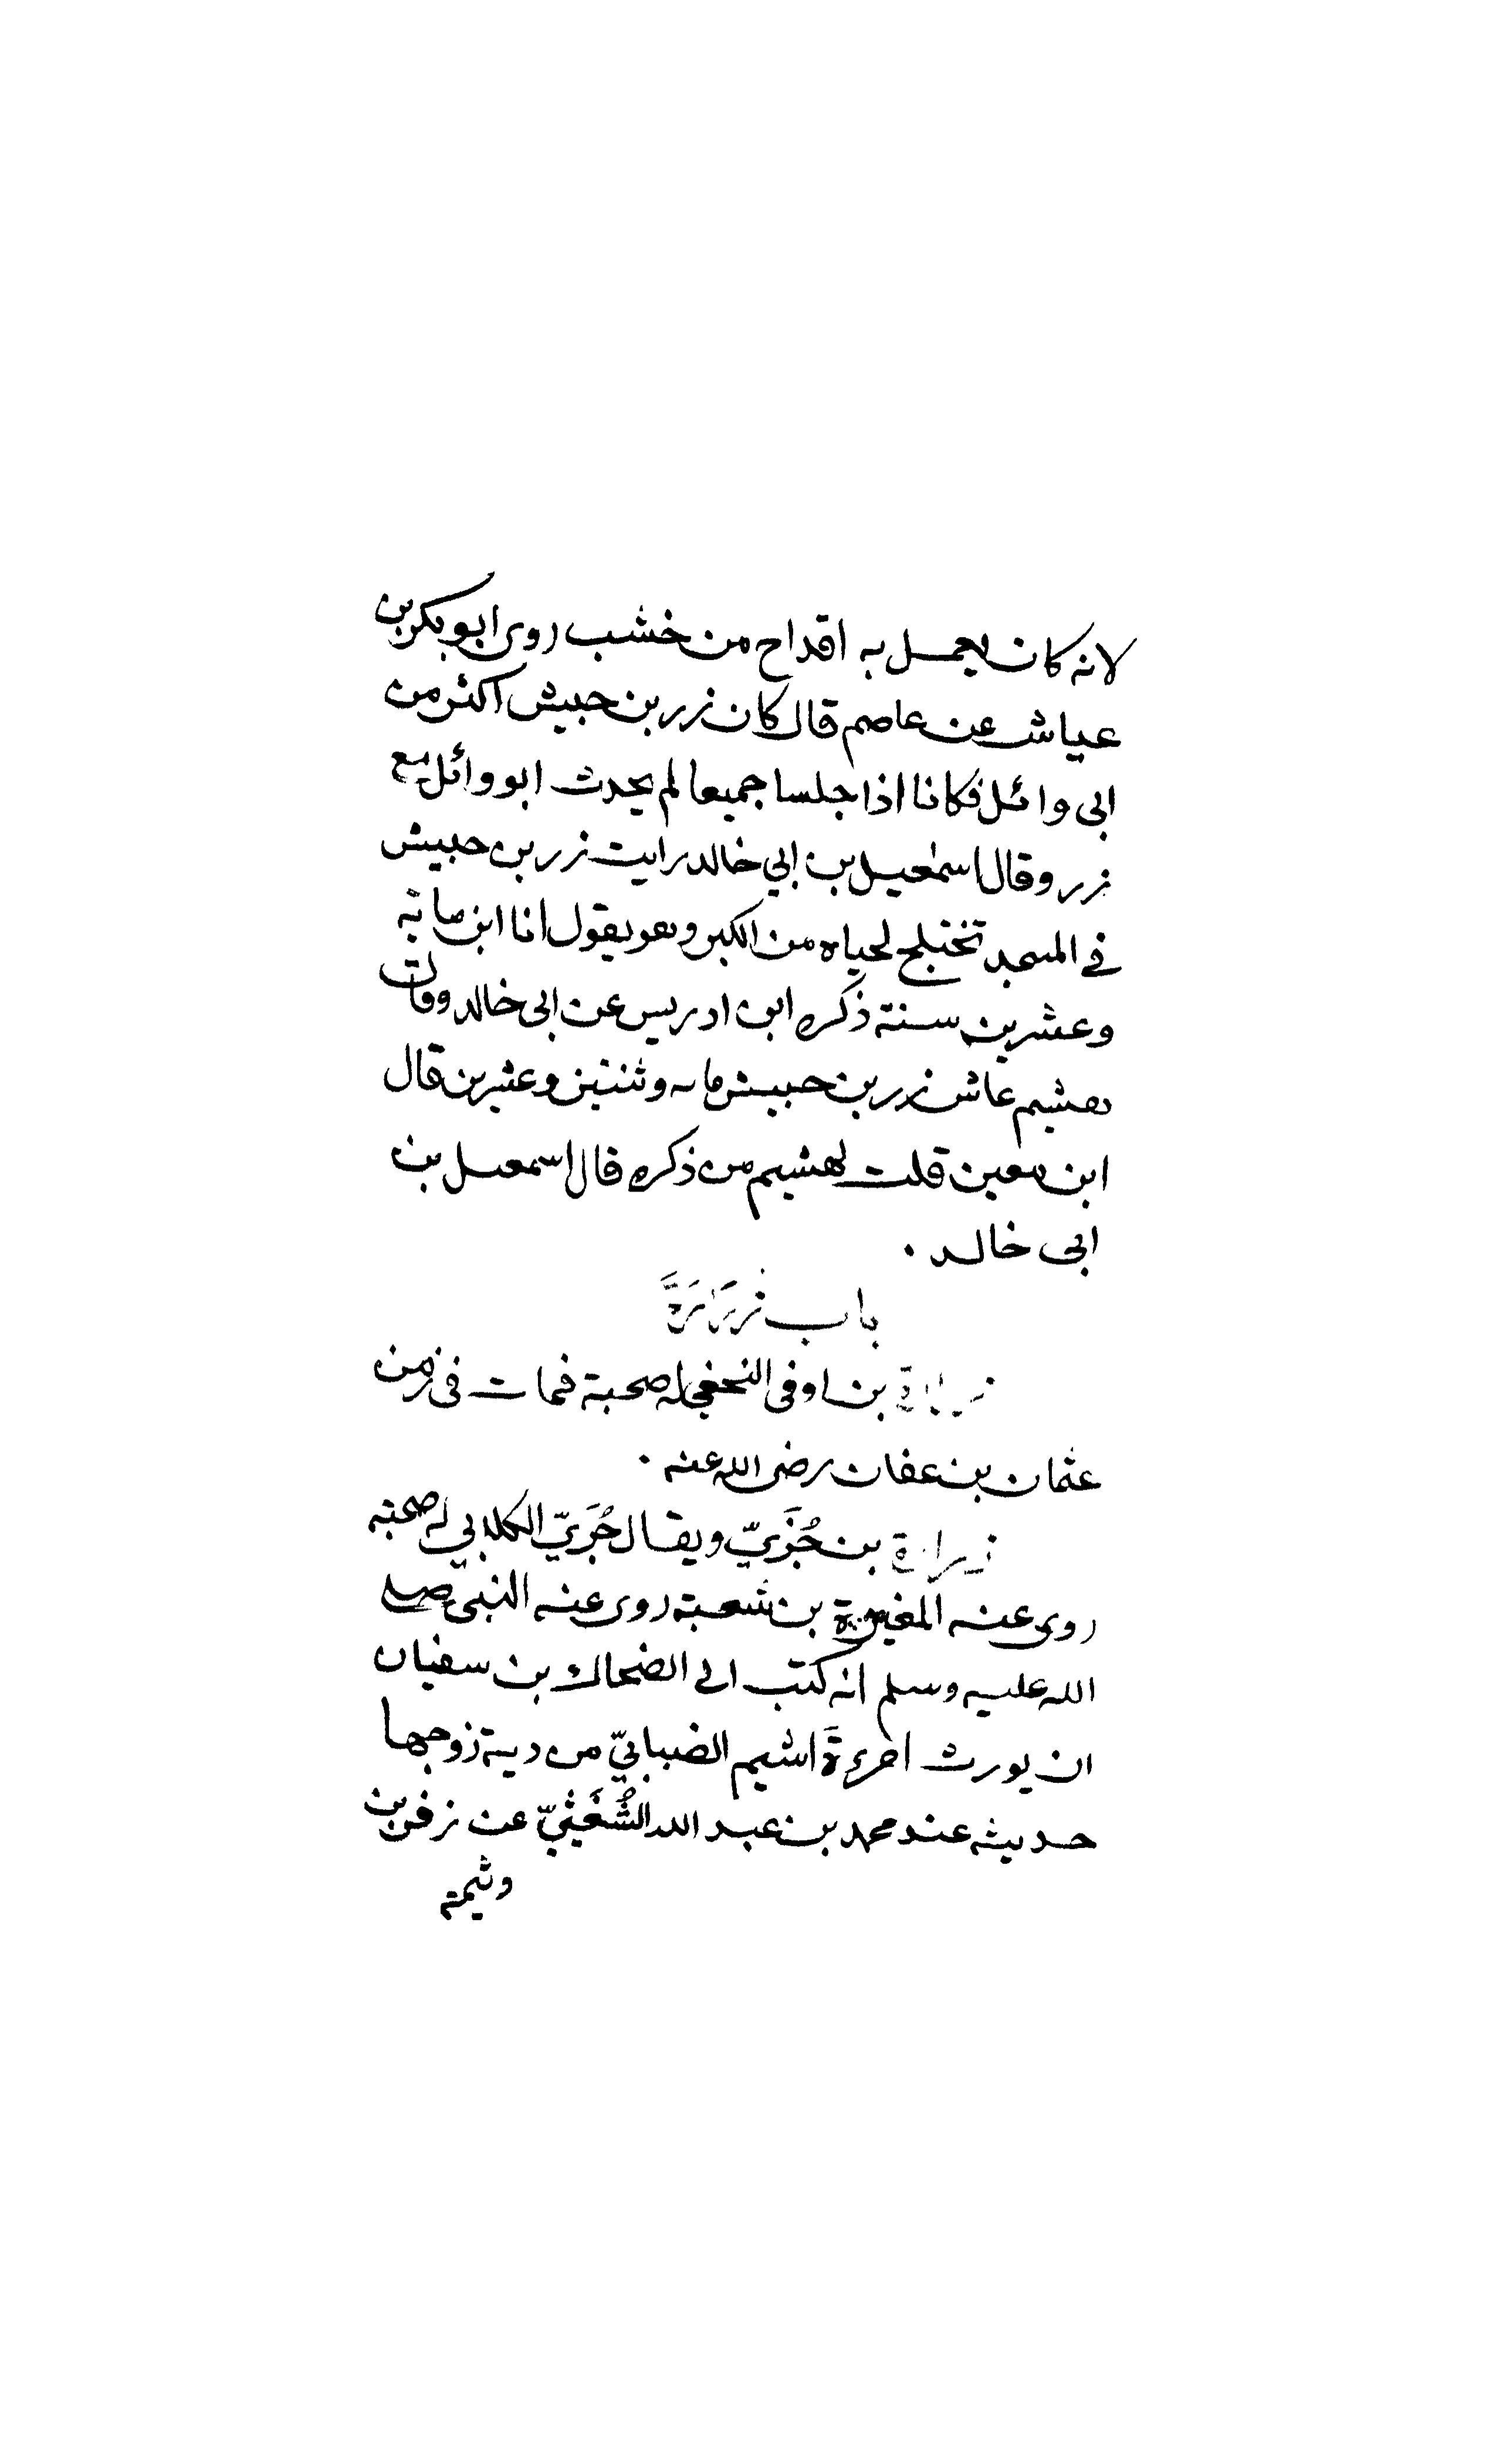 لانه كان يعمل به اقداح من خشب روى ابو بكر بن
عياش عن عاصم قال كان زر بن حبيش اكثر من
ابى وائل فكانا اذا جلسا جميعا لم يحدث ابو وائل مع
زر وقال اسمعيل بن ابي خالد رايت زر بن حبيش
في المسجد تختلج لحياه من الكبر وهو يقول انا ابن ماية
وعشرين سنة ذكره ابن ادريس عن ابى خالد وقال
هشيم عاش زر بن حبيش مايه وثنتين وعشرين قال
ابن معين قلت لهشيم من ذكره قال اسمعيل بن
ابى خالد .
باب زُرَارَةَ
زرارة بن اوفى النخعي له صحبة فمات فى زمن
عثمان بن عفان رضى الله عنه .
زرارة بن جُزَيّ ويقال جُرَيّ الكلابي له صحبة
روى عنه المغيرة بن شعبة روى عنه النبى صلى
الله عليه وسلم انه كتب الى الضحاك بن سفيان
ان يورث امرءةَ اشيم الضبابيّ من دية زوجها
حديثه عند محمد بن عبد الله الشُّعَيثيّ عن زفر بن
وثيمة